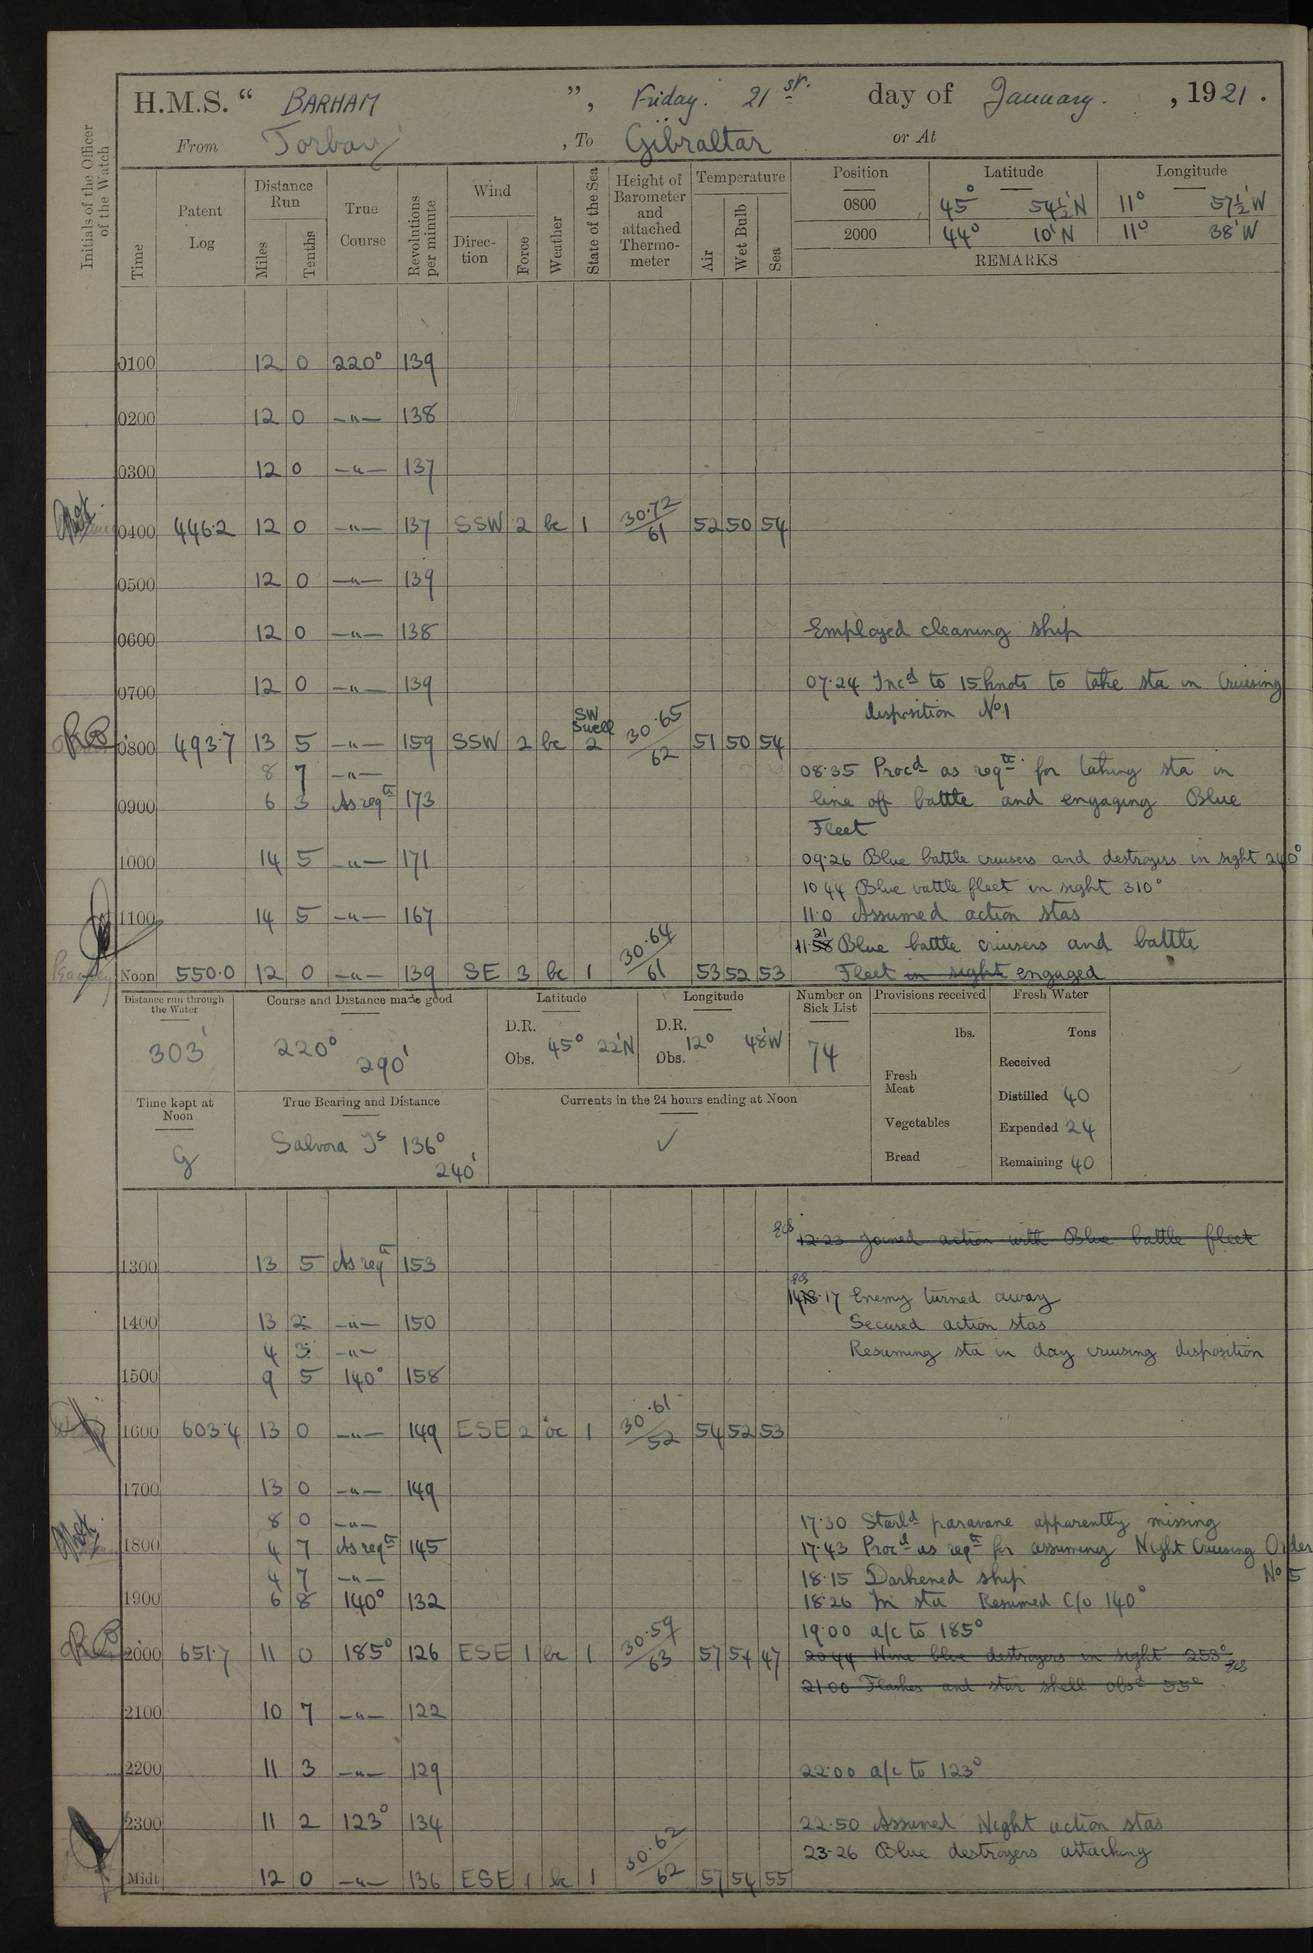 H.M.S. “ BARHAM ”, Friday. 21st. day of January. , 1921.
From Torbay , To Gibraltar or At
Initials of the Officer of the Watch
Time
Patent Log
Distance Run
Miles
Tenths
True Course
Revolutions per minute
Wind
Direction
Force
Weather
State of the Sea
Height of Barometer and attached Thermometer
Temperature
Air
Wet Bulb
Sea
Position Latitude Longitude
0800 45° 54½'N 11° 57½'W
2000 44° 10'N 11° 38'W
REMARKS
0100 12 0 220° 139
0200 12 0 –"– 138
0300 12 0 –"– 137
0400 446.2 12 0 –"– 137 SSW 2 bc 1 30.72/61 52 50 54
0500 12 0 –"– 139
0600 12 0 –"– 138 Employed cleaning ship
0700 12 0 –"– 139 07.24 Incd to 15 knots to take sta in Cruising
disposition No1
0800 493.7 13 5 –"– 159 SSW 2 bc SW Swell 2 30.65/62 51 50 54
8 7 –"– 08.35 Procd as reqte for taking sta in
0900 6 3 As reqte 173 line off battle and engaging Blue
Fleet
1000 14 5 –"– 171 09.26 Blue battle cruisers and destroyers in sight 240°
10 44 Blue battle fleet in sight 310°
1100 14 5 –"– 167 11.0 Assumed action stas
11.21 Blue battle cruisers and battle
Noon 550.0 12 0 –"– 139 SE 3 bc 1 30.64/61 53 52 53 Fleet in sight engaged
Distance run through the Water
303'
Course and Distance made good
220° 290'
Latitude
D.R.
Obs. 45° 22'N
Longitude
D.R.
Obs. 12° 48'W
Number on Sick List
74
Provisions received
lbs.
Fresh Meat
Vegetables
Bread
Fresh Water
Tons
Received
Distilled 40
Expended 24
Remaining 40
Time kept at Noon
G
True Bearing and Distance
Salvora Is 136°
240'
Currents in the 24 hours ending at Noon
✓
12.23 Joined action with Blue battle fleet
1300 13 5 As reqte 153
14.17 Enemy turned away
1400 13 2 –"– 150 Secured action stas
4 3 –"– Resuming sta in day cruising disposition
1500 9 5 140° 158
1600 603.4 13 0 –"– 149 ESE 2 bc 1 30.61/52 54 52 53
1700 13 0 –"– 149
8 0 –"– 17.30 Starbd paravane apparently missing
1800 4 7 As reqte 145 17.43 Procd as reqte for assuming Night Cruising Order
No 5
4 7 –"– 18.15 Darkened ship
1900 6 8 140° 132 18.26 In sta Resumed C/o 140°
19.00 a/c to 185°
2000 651.7 11 0 185° 126 ESE 1 bc 1 30.59/63 57 54 47 2044 Nine blue destroyers in sight 253°
2100 Flashes and star shell obsd 55°
2100 10 7 –"– 122
2200 11 3 –"– 129 22.00 a/c to 123°
2300 11 2 123° 134 22.50 Assumed Night action stas
23.26 Blue destroyers attacking
Midt 12 0 –"– 136 ESE 1 bc 1 30.62/62 57 54 55